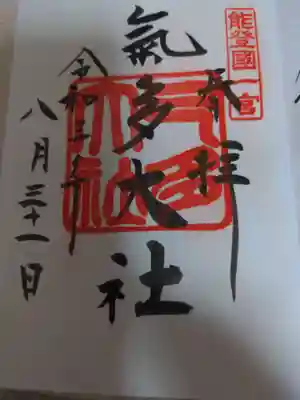 能登國一宮
奉拝
氣多大社
氣多大社
令和三年
八月三十一日